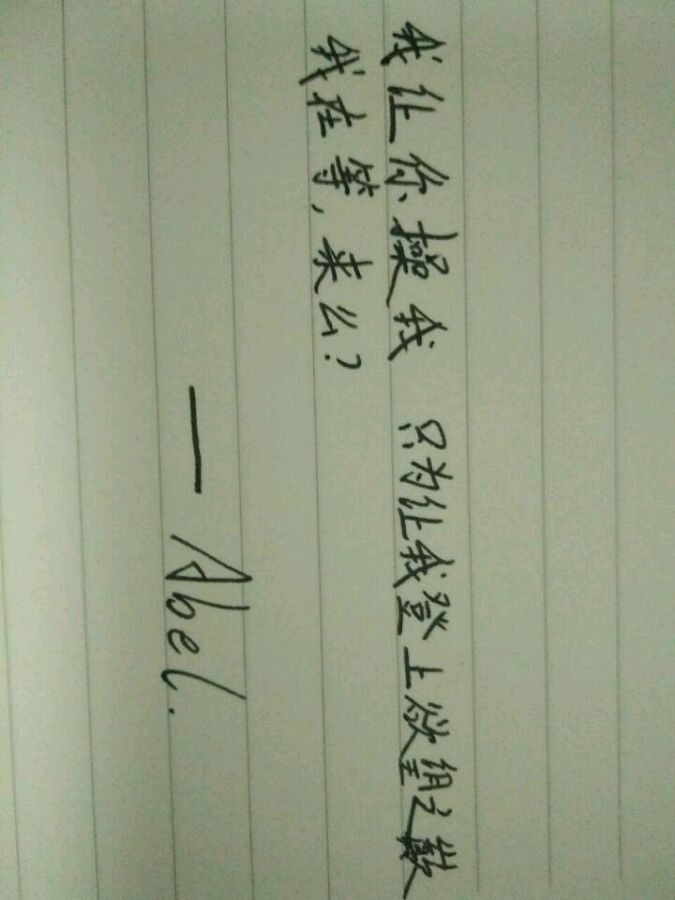 我让你操我 只为让我登上欲望之
我在等，来么？
— Abel.